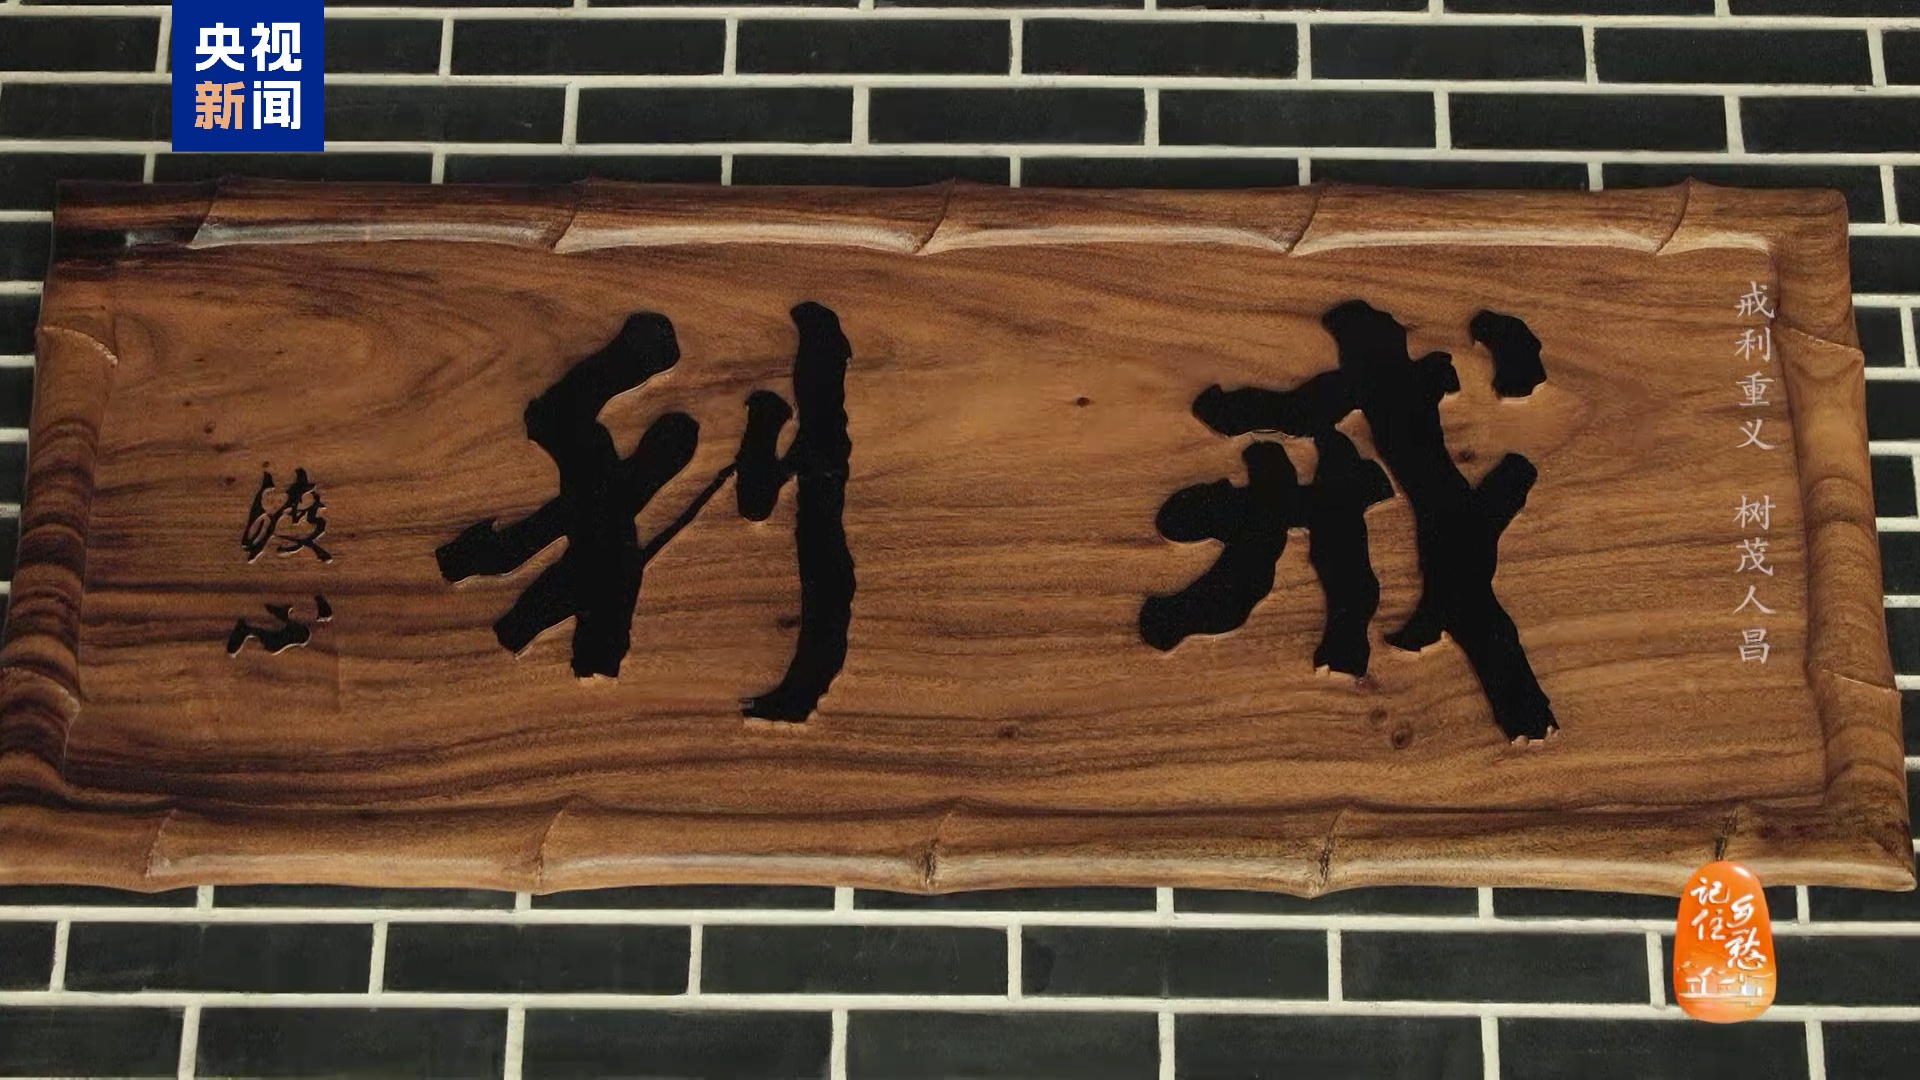 央视
新闻
戒利
渡心
戒利重义 树茂人昌
记住
乡愁